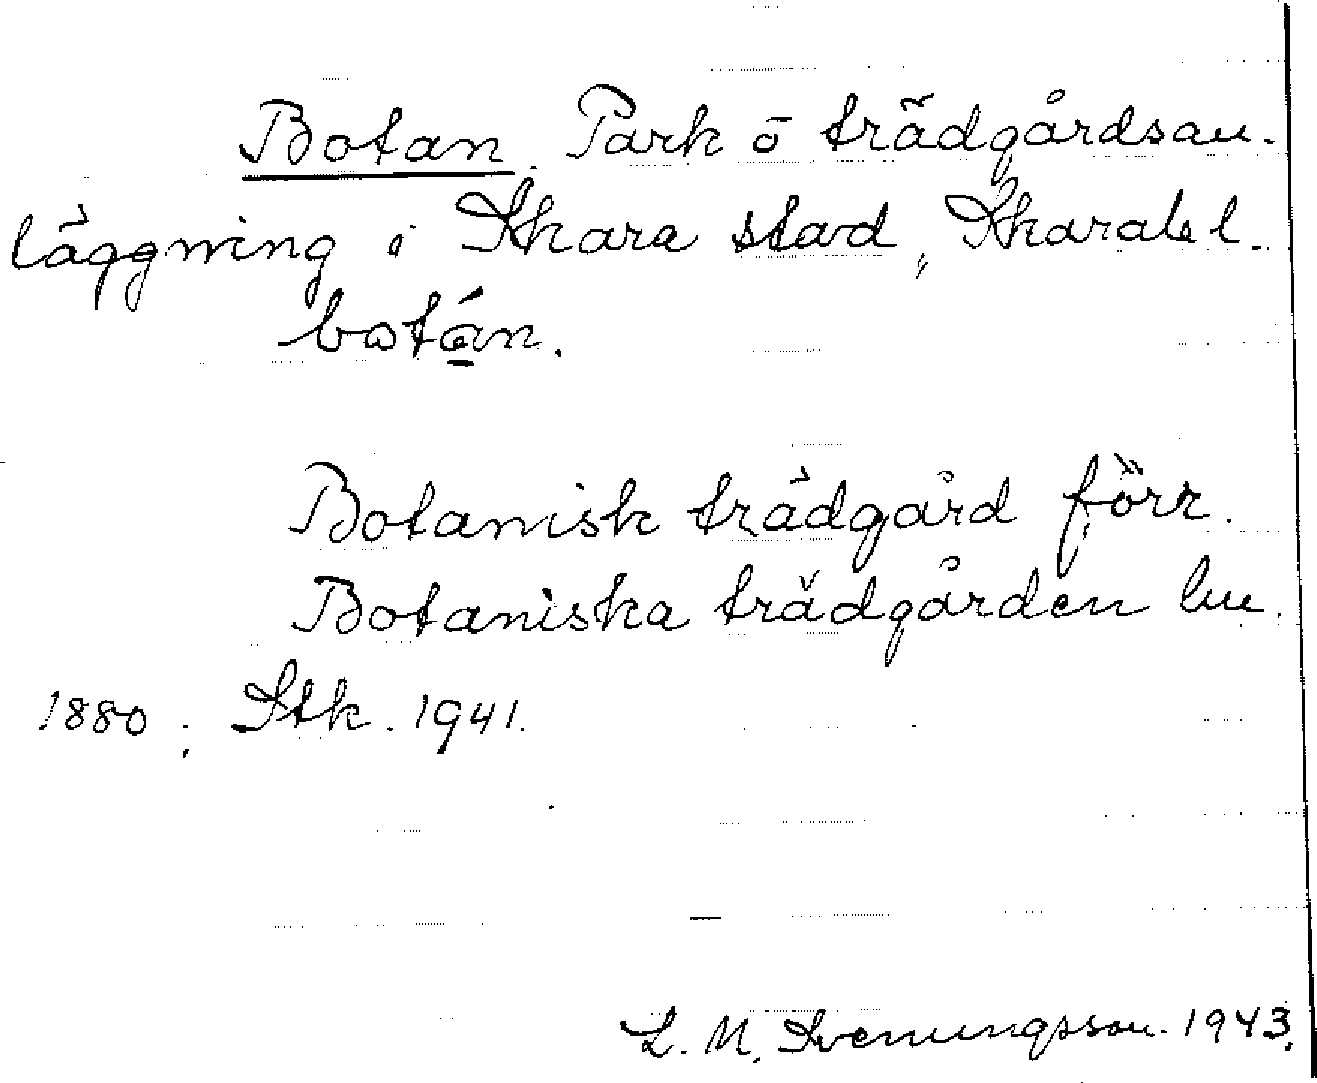 Botan. Park ō trädgårdsan-
läggning i Skara stad, Skarab. l.
botán.
Botanisk trädgård förr.
Botaniska trädgården
1880. Stk. 1941.
L. M. Svenungsson. 1943.